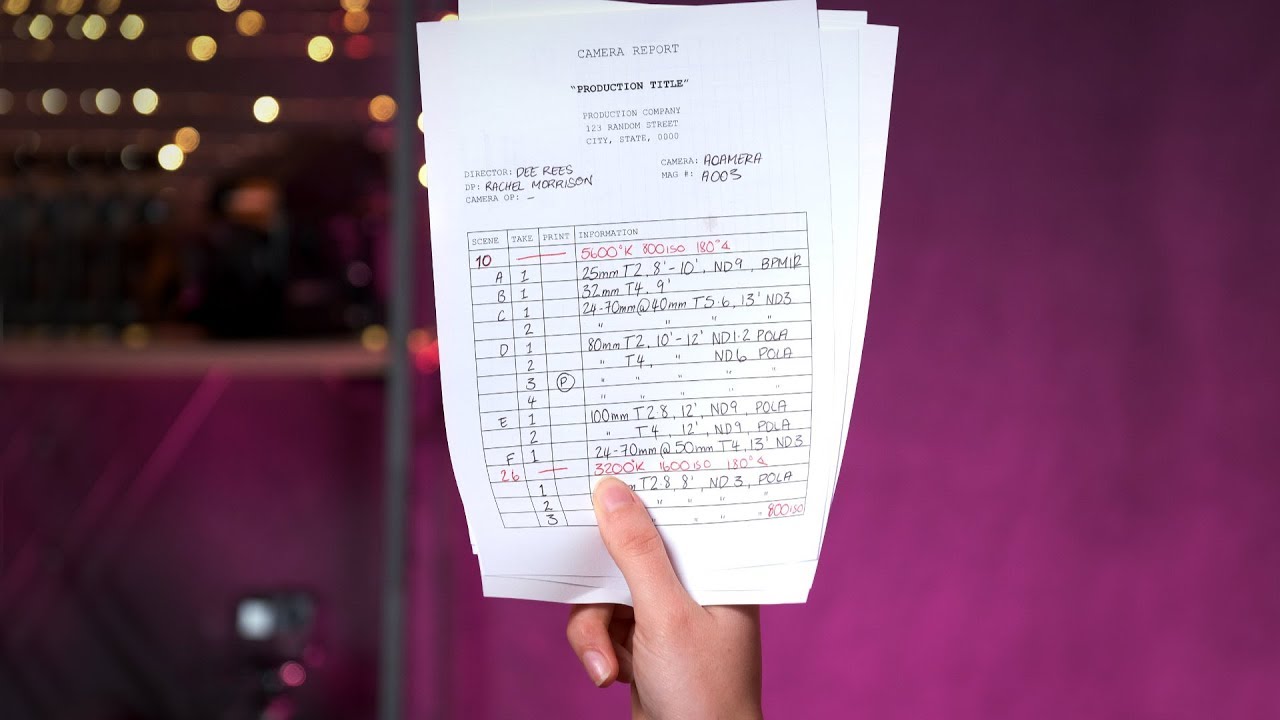 CAMERA REPORT
"PRODUCTION TITLE"
PRODUCTION COMPANY
123 RANDOM STREET
CITY, STATE, 0000
DIRECTOR: DEE REES
DP: RACHEL MORRISON
CAMERA OP: –
CAMERA: ACAMERA
MAG #: A003
SCENE TAKE PRINT INFORMATION
10 — 5600°K 800ISO 180°∡
A 1 25mm T2, 8'-10', ND9, BPM1/2
B 1 32mm T4, 9'
C 1 24-70mm@40mm T5.6, 13' ND3
2 " " " "
D 1 80mm T2, 10'-12' ND1.2 POLA
2 " T4, " ND6 POLA
3 P " " " " "
4 " " " " "
E 1 100mm T2.8, 12', ND9, POLA
2 " T4, 12', ND9, POLA
F 1 24-70mm@50mm T4, 13' ND3
26 — 3200°K 1600ISO 180°∡
1 m T2.8 8', ND.3, POLA
2 " " " "
3 " " " 800ISO